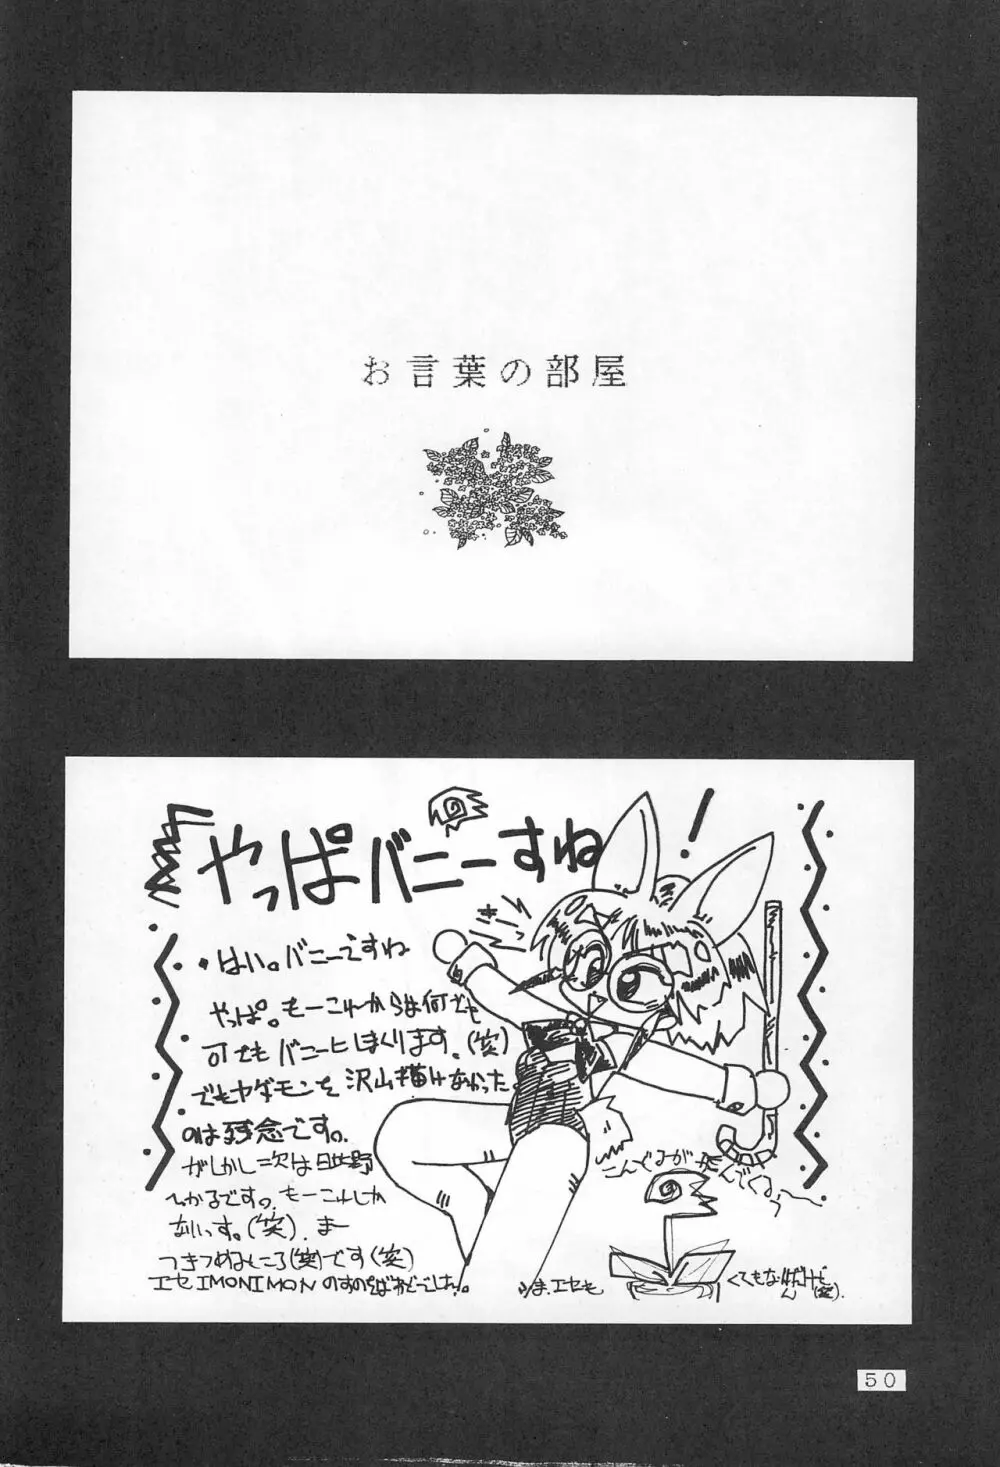 お言葉の部屋
やっぱバニーすね!
・はい。バニーですね
やっぱ。もーこれからは何でも
可でもバニーにしまくります。(笑)
でもヤダモンを沢山描けなかった
のは残念です。
がしかし二次は日比野
ひかるです。もーこれしか
ないっす。(笑)。まー
つきつめるところ(笑)です(笑)
エセIMONIMONの
でした!。
こんでるが
くてもな
(笑).
50